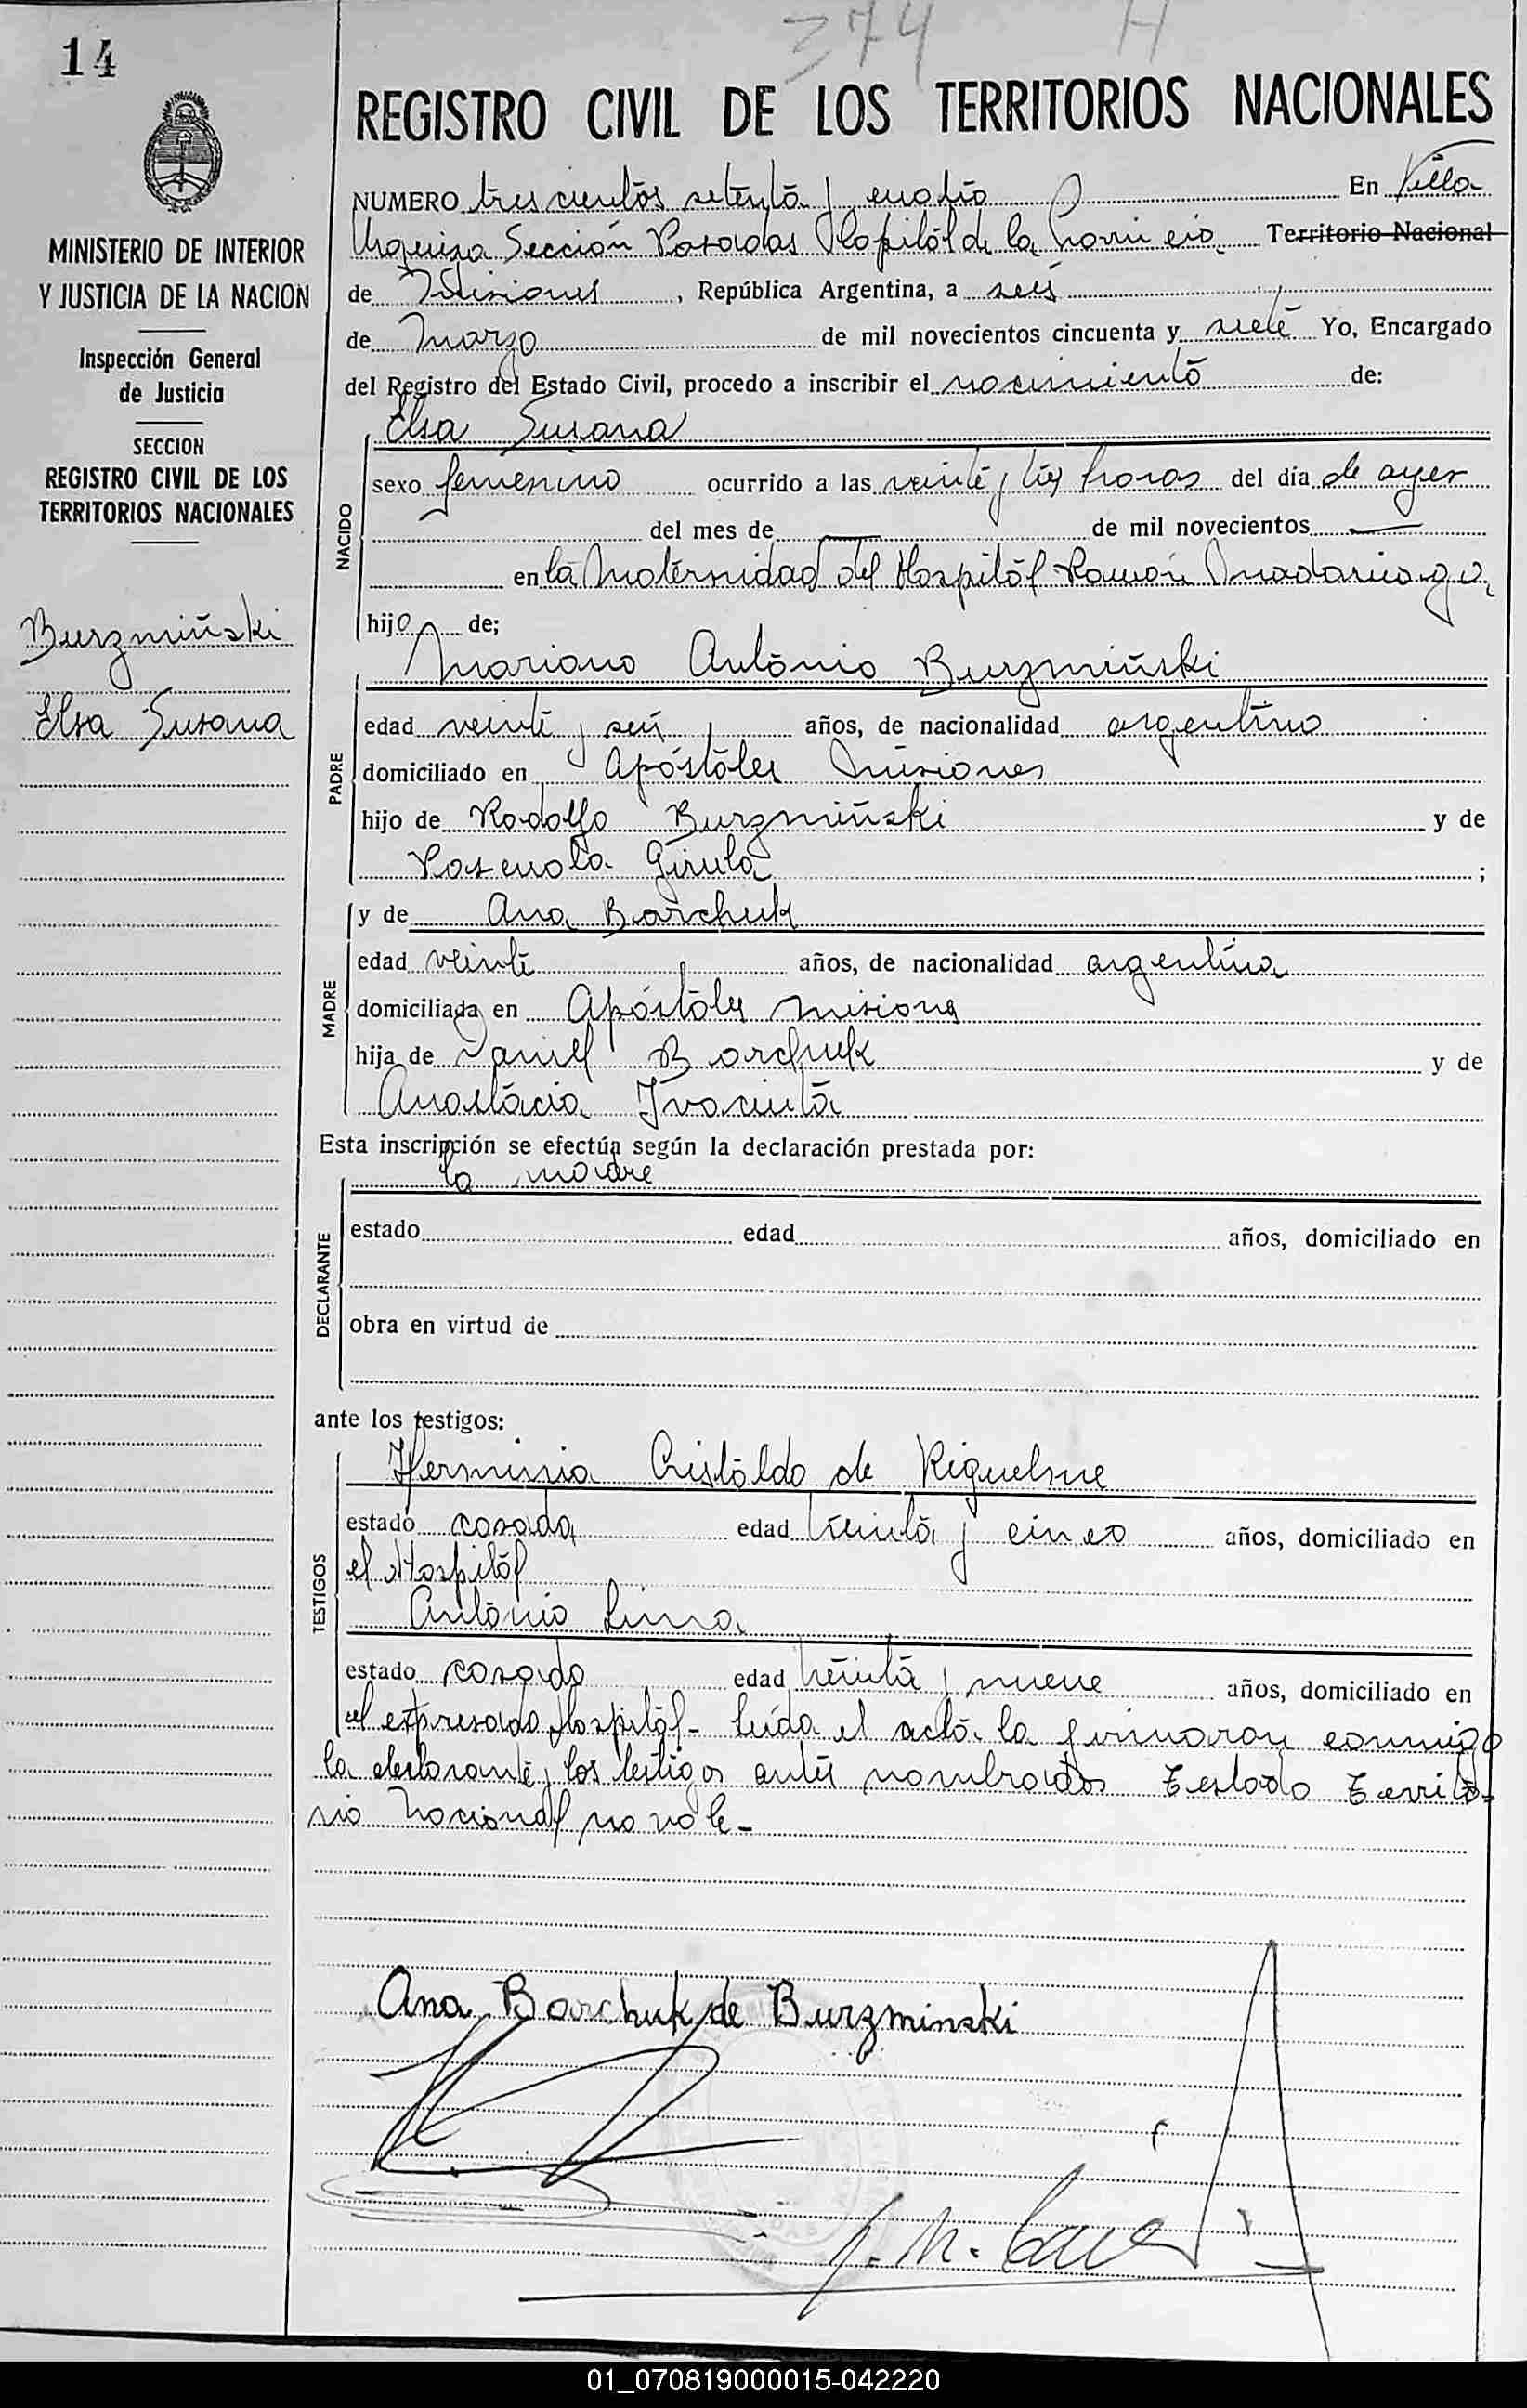 14
374 H
REGISTRO CIVIL DE LOS TERRITORIOS NACIONALES
MINISTERIO DE INTERIOR
Y JUSTICIA DE LA NACION
Inspección General
de Justicia
SECCION
REGISTRO CIVIL DE LOS
TERRITORIOS NACIONALES
Burzmiñski
Elsa Susana
NUMERO trescientos setenta y cuatro En Villa
Urquiza Sección Posadas Hospital de la Provincia Territorio Nacional
de Misiones, República Argentina, a seis
de Marzo de mil novecientos cincuenta y siete Yo, Encargado
del Registro del Estado Civil, procedo a inscribir el nacimiento de:
Elsa Susana
NACIDO
sexo femenino ocurrido a las veinte y tres horas del día de ayer
del mes de de mil novecientos
en la Maternidad del Hospital Ramón Madariaga
hijo de;
Mariano Antonio Burzmiñski
PADRE
edad veinte y seis años, de nacionalidad argentino
domiciliado en Apóstoles Misiones
hijo de Rodolfo Burzmiñski y de
Girula ;
y de Ana Barchuk
MADRE
edad veinte años, de nacionalidad argentina
domiciliada en Apóstoles Misiones
hija de Daniel Barchuk y de
Anastacia
Esta inscripción se efectúa según la declaración prestada por:
la madre
DECLARANTE
estado edad años, domiciliado en
obra en virtud de
ante los testigos:
Herminia Cristaldo de Riquelme
TESTIGOS
estado casada edad treinta y cinco años, domiciliado en
el Hospital
Antonio Lima
estado casado edad treinta y nueve años, domiciliado en
el expresado Hospital- Leída el acta la firmaron conmigo
la declarante y los testigos antes nombrados Testado Territo-
rio Nacional no vale-
Ana Barchuk de Burzminski
01_070819000015-042220